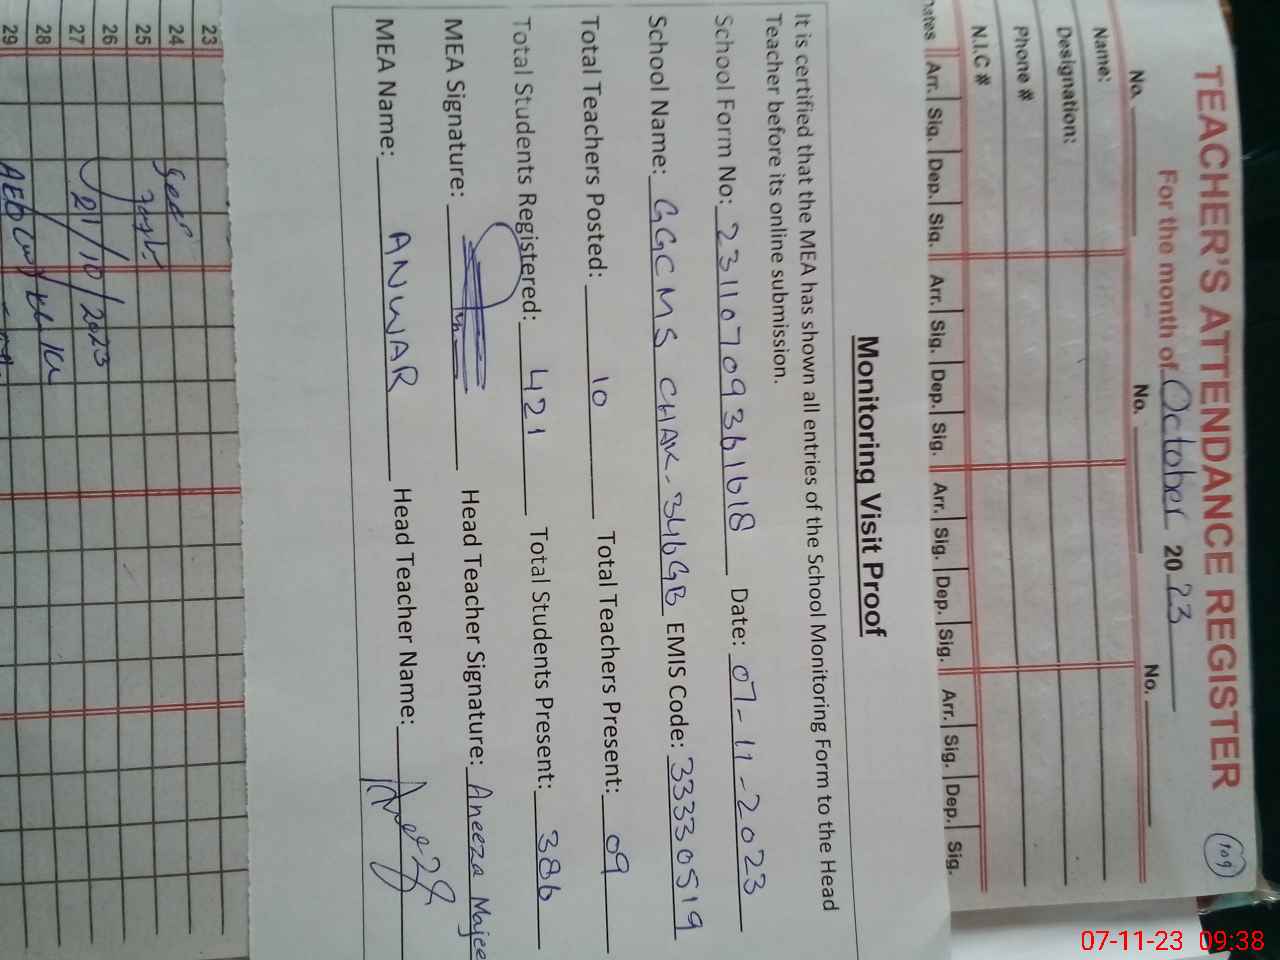 TEACHER'S ATTENDANCE REGISTER
109
For the month of October 2023
No. No. No.
Name:
Designation:
Phone #
N.I.C #
Arr. Sig. Dep. Sig. Arr. Sig. Dep. Sig. Arr. Sig. Dep. Sig. Arr. Sig. Dep. Sig.
Monitoring Visit Proof
It is certified that the MEA has shown all entries of the School Monitoring Form to the Head
Teacher before its online submission.
School Form No: 23110709361618 Date: 07-11-2023
School Name: GGCMS CHAK-346GB EMIS Code: 33330519
Total Teachers Posted: 10 Total Teachers Present: 09
Total Students Registered: 421 Total Students Present: 386
MEA Signature: Head Teacher Signature: Aneeza Majee
MEA Name: ANWAR Head Teacher Name:
23
24
25
26
27
28
29
Seen
21/10/2023
AEO
07-11-23 09:38